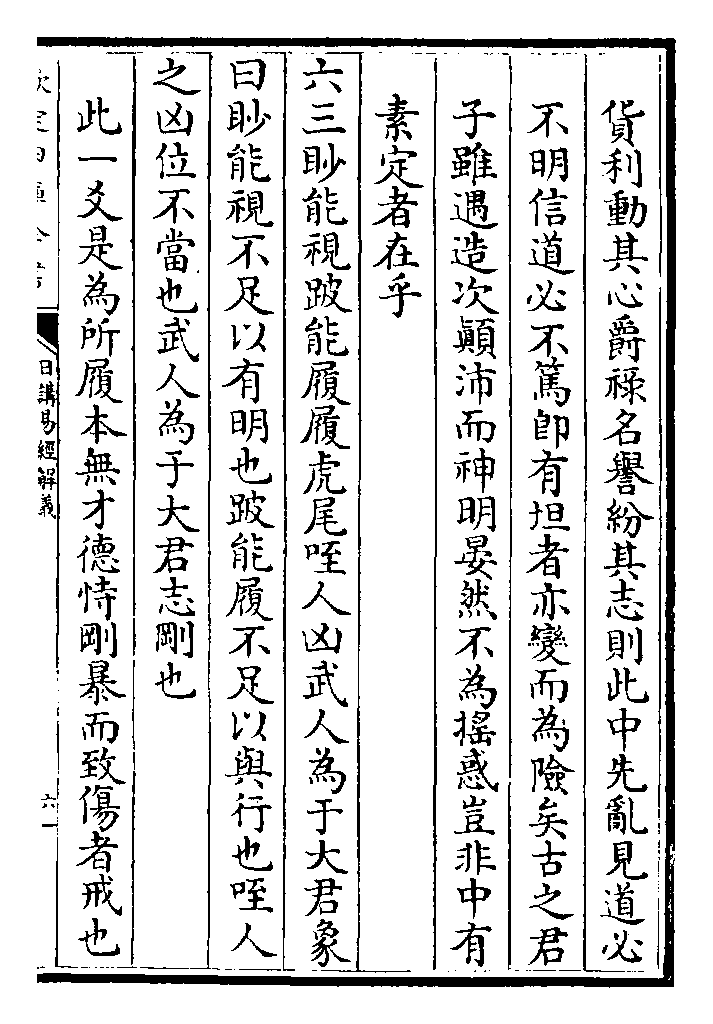 貨利動其心爵祿名譽紛其志則此中先亂見道必
不明信道必不篤卽有坦者亦變而為險矣古之君
子雖遇造次顚沛而神明晏然不為搖惑豈非中有
素定者在乎
六三眇能視跛能履履虎尾咥人凶武人為于大君象
曰眇能視不足以有明也跛能履不足以與行也咥人
之凶位不當也武人為于大君志剛也
此一爻是為所履本無才德恃剛暴而致傷者戒也
日講易經解義
六